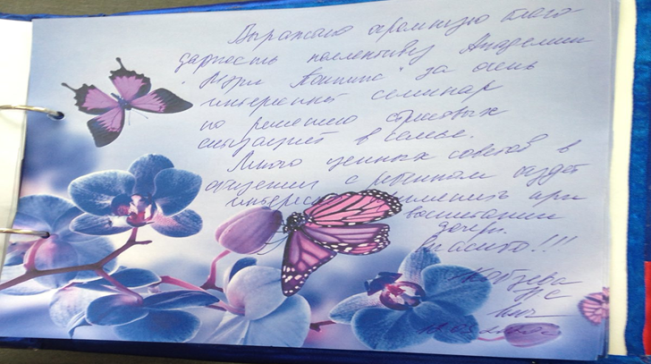 Выражаю огромную благо-
дарность коллективу Академии
"Мэри Поппинс" за очень
интересный семинар
по решению стрессовых
ситуаций в семье.
Много ценных советов в
общении с ребенком будет
интересно применить при
воспитании
дочери.
Спасибо!!!